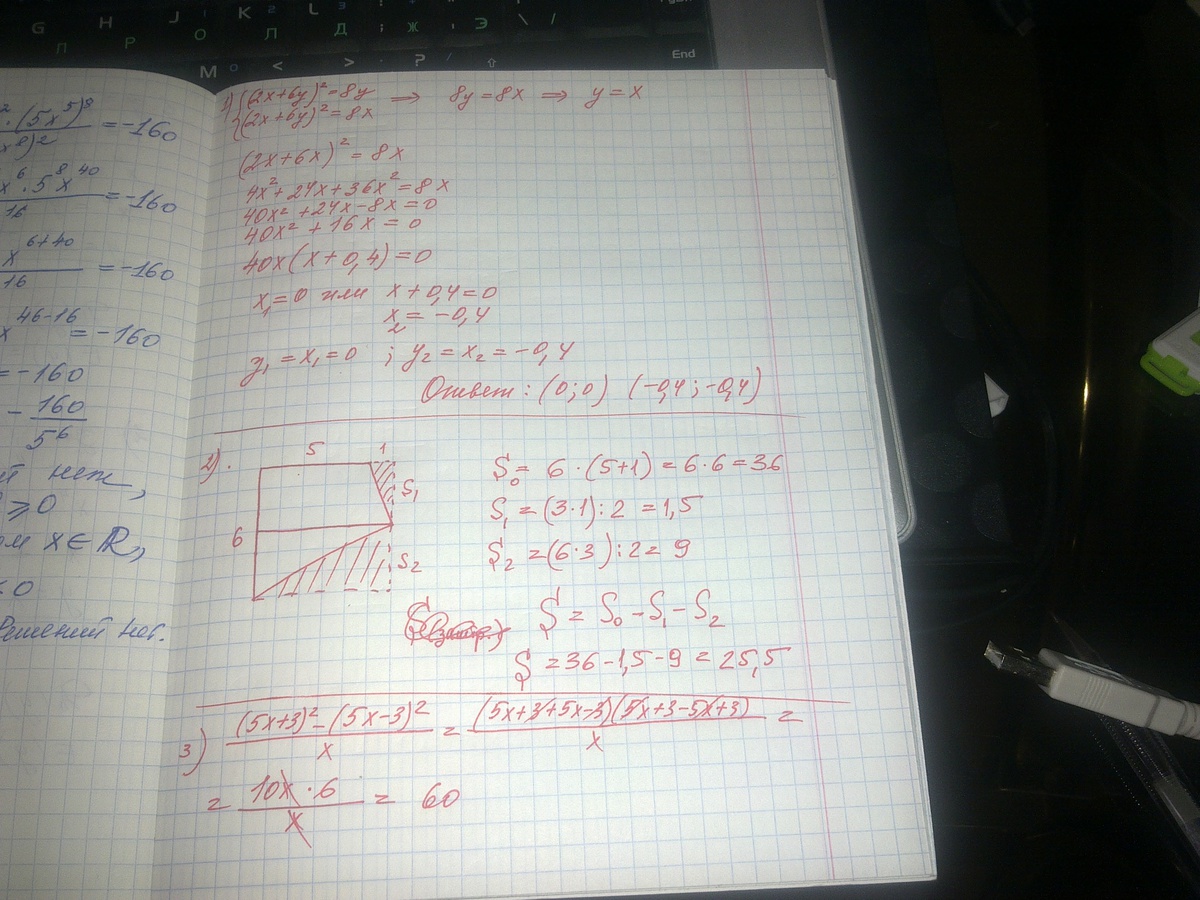 G H J K L ; : "
П Р О Л Д Ж Э \ /
M < > ? End
² · (5x⁵)⁸
x⁸)² = -160
x⁶ · 5⁸ x⁴⁰
16 = -160
x⁶⁺⁴⁰
16 = -160
x⁴⁶⁻¹⁶ = -160
= -160
- 160/5⁶
нет,
≥ 0
x ∈ ℝ,
< 0
Решений нет.
1) {(2x+6y)² = 8y ⇒ 8y = 8x ⇒ y = x
{(2x+6y)² = 8x
(2x+6x)² = 8x
4x² + 24x + 36x² = 8x
40x² + 24x - 8x = 0
40x² + 16x = 0
40x(x + 0,4) = 0
x₁ = 0 или x + 0,4 = 0
x₂ = -0,4
y₁ = x₁ = 0 ; y₂ = x₂ = -0,4
Ответ: (0; 0) (-0,4; -0,4)
2).
5 1
S₁
6
S₂
S₀ = 6 · (5+1) = 6·6 = 36
S₁ = (3·1):2 = 1,5
S₂ = (6·3):2 = 9
S = S₀ - S₁ - S₂
S = 36 - 1,5 - 9 = 25,5
3) ((5x+3)² - (5x-3)²)/x = ((5x+3+5x-3)(5x+3-5x+3))/x =
= (10x · 6)/x = 60